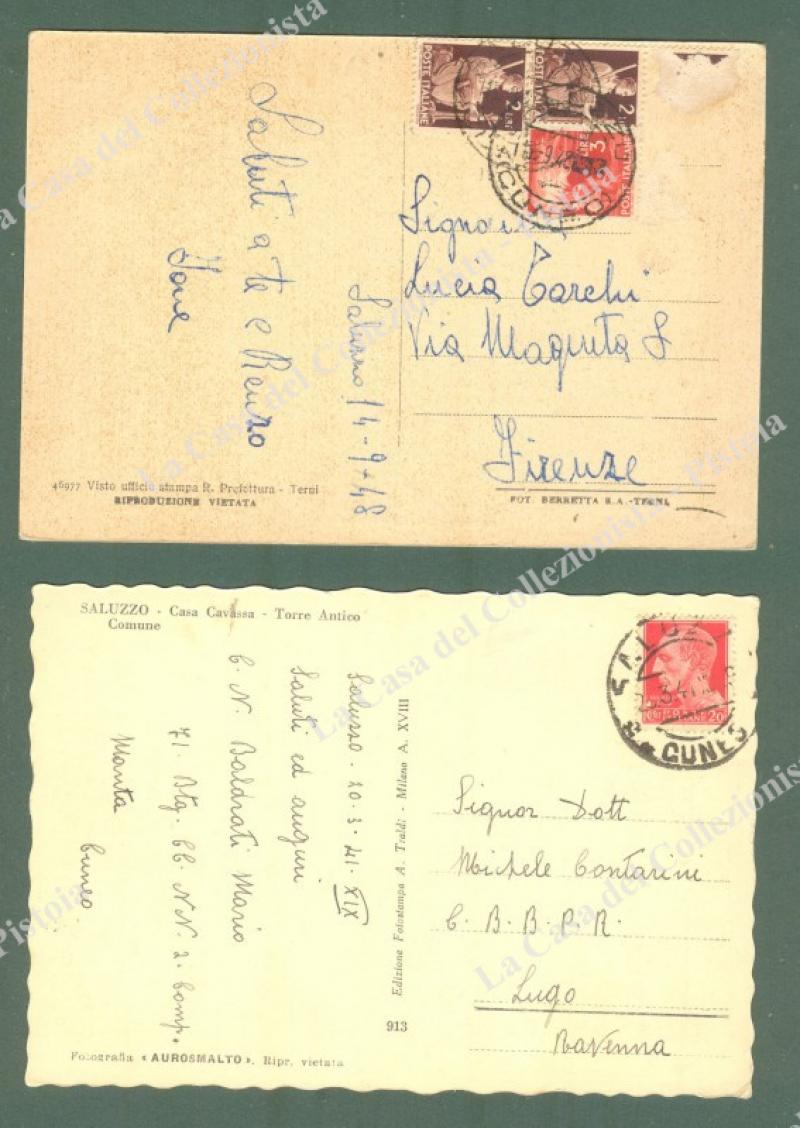 POSTE ITALIANE
2 LIRE
POSTE ITALIANE
LIRE 3
POSTE ITALIANE
Saluti a te e Renzo
Saluzzo 14-9-48
Lucia Tarchi
Via
Firenze
46977 Visto ufficio stampa R. Prefettura - Terni
RIPRODUZIONE VIETATA
FOT. BERRETTA S.A. - TERNI
SALUZZO - Casa Cavassa - Torre Antico
Comune
Saluzzo - 20-3-41-XIX
Saluti ed auguri
C. N. Baldrati Mario
71. Btg. CC. NN. 2. Comp.
Manta
Cuneo
Edizione Fotostampa A. Traldi - Milano A. XVIII
913
Fotografia « AUROSMALTO ». Ripr. vietata
SALUZZO
CUNEO
Signor Dott
Michele Contarini
C. B. B. P. R.
Lugo
Ravenna
La Casa del Collezionista - Pistoia